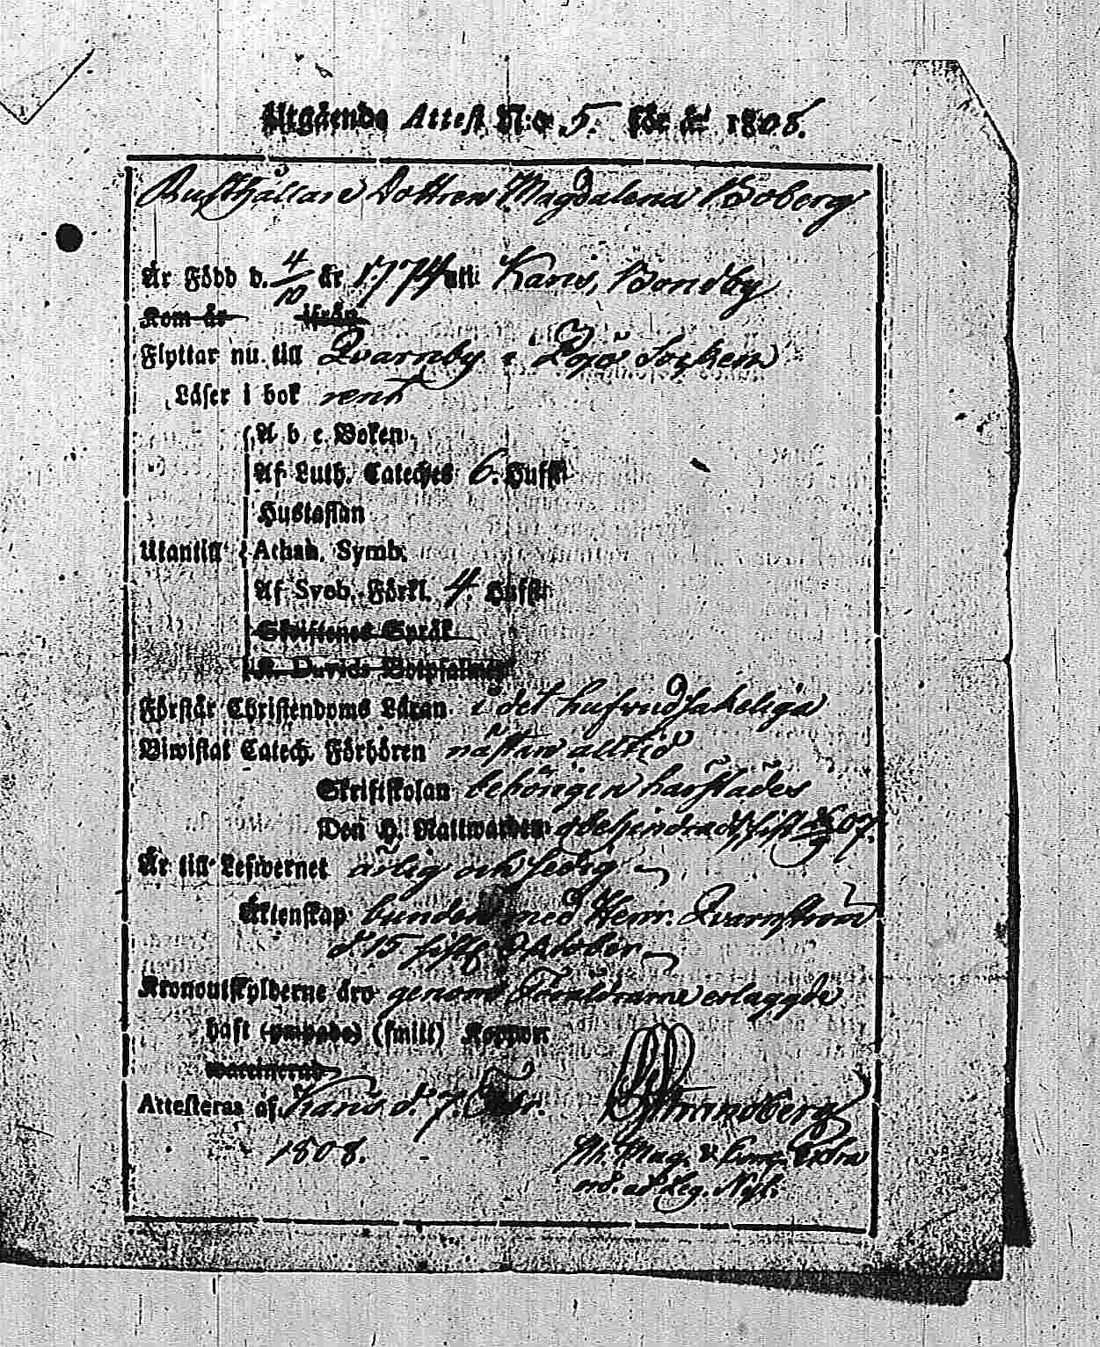 Utgående Attest N:o 5. för år 1808.
Rusthållare Dottren Magdalena Boberg
Är Född d. 4/10 år 1774 uti Karis, Bondby
Kom år ifrån
Flyttar nu till Qvarnby i Pojo Socken
Läser i bok rent
A b c Boken
Af Luth. Cateches 6. Hufst.
Hustaflan
Utantill Athan. Symb.
Af Sveb. Förkl. 4 Hufst.
Skriftenes Språk
K. Davids Botpsalmer
Förstår Christendoms Läran i det hufvudsakeliga
Biwistat Catech. Förhören nästan alltid
Skriftskolan behörigen härstädes
Den H. Nattwarden obehindradt, sist 07.
Är till Lefwernet ärlig och sedig
Äktenskap bunden med Henr. Qvarnström
d. 15 sistl. Oktober
Kronoutskylderne äro genom Föräldrarne erlagde
haft (ympade) (smitt) Koppor
waccinerad
Attesteras af Karis d. 7. Febr. Strandberg
1808. Ph. Mag. &
ord. at Leg. Nyl.